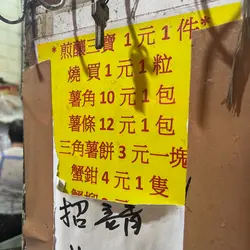 *煎釀三寶 1元1件*
燒賣1元1粒
薯角10元1包
薯條12元1包
三角薯餅3元一塊
蟹鉗4元1隻
招請